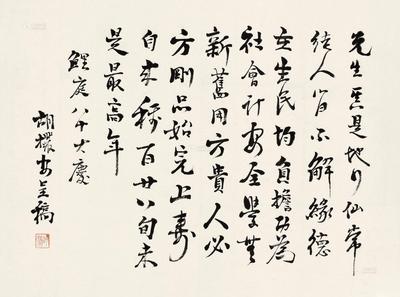 先生真是地行仙常
結人間不解緣德
在生民均負擔功為
社會計安全學無
新舊用方貴人必
方剛品始完上壽
自來稱百廿八旬未
是最高年
鯉庭八十大慶
胡樸安呈稿